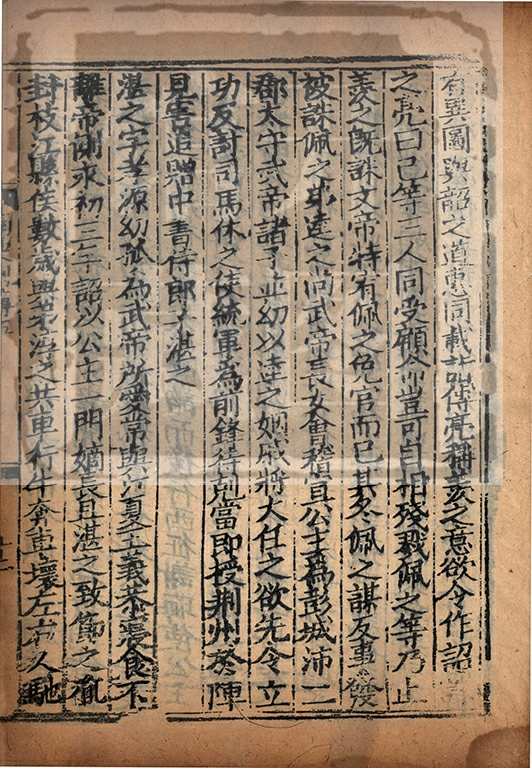 有異圖與韶之道惠同載詣傅亮稱羨之意欲令作詔
之亮曰己等三人同受顧命豈可自相殘戮佩之等乃止
羨之既誅文帝特宥佩之免官而已其冬佩之謀反事發
被誅佩之弟逵之尚武帝長女會稽宣公主為彭城沛二
郡太守武帝諸子並幼以逵之姻戚將大任之欲先令立
功及討司馬休之使統軍為前鋒待尅當即授荊州於陣
見害追贈中書侍郎子湛之
湛之字孝源幼孤為武帝所愛常與江夏王義恭寢食不
離帝側永初三年詔以公主一門嫡長且湛之致節之胤
封枝江縣侯數歲與弟淳之共車行牛奔車壞左右人馳